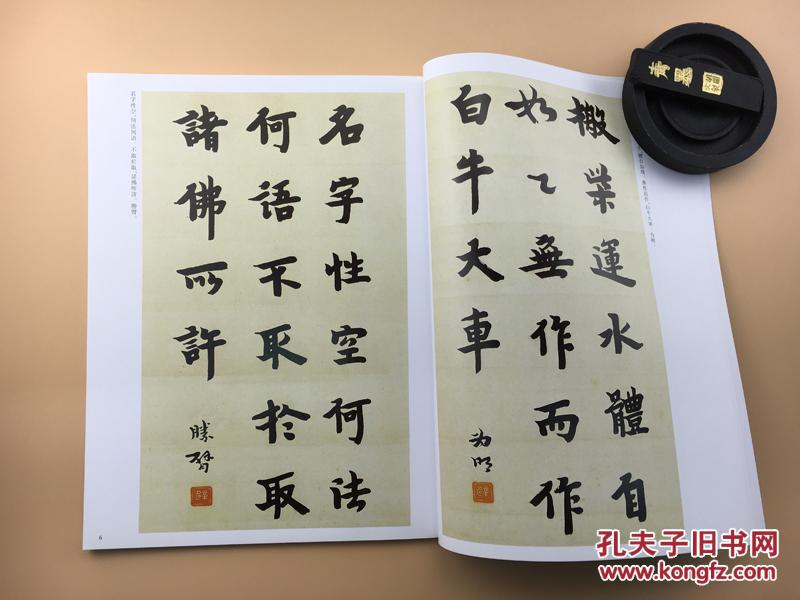 搬柴運水體自
如々無作而作
白牛大車
名字性空何法
何語不取於取
諸佛所許
勝髻
名字性空，何法何語。不取於取，諸佛所許。勝髻。
6
青墨
孔夫子旧书网
www.kongfz.com